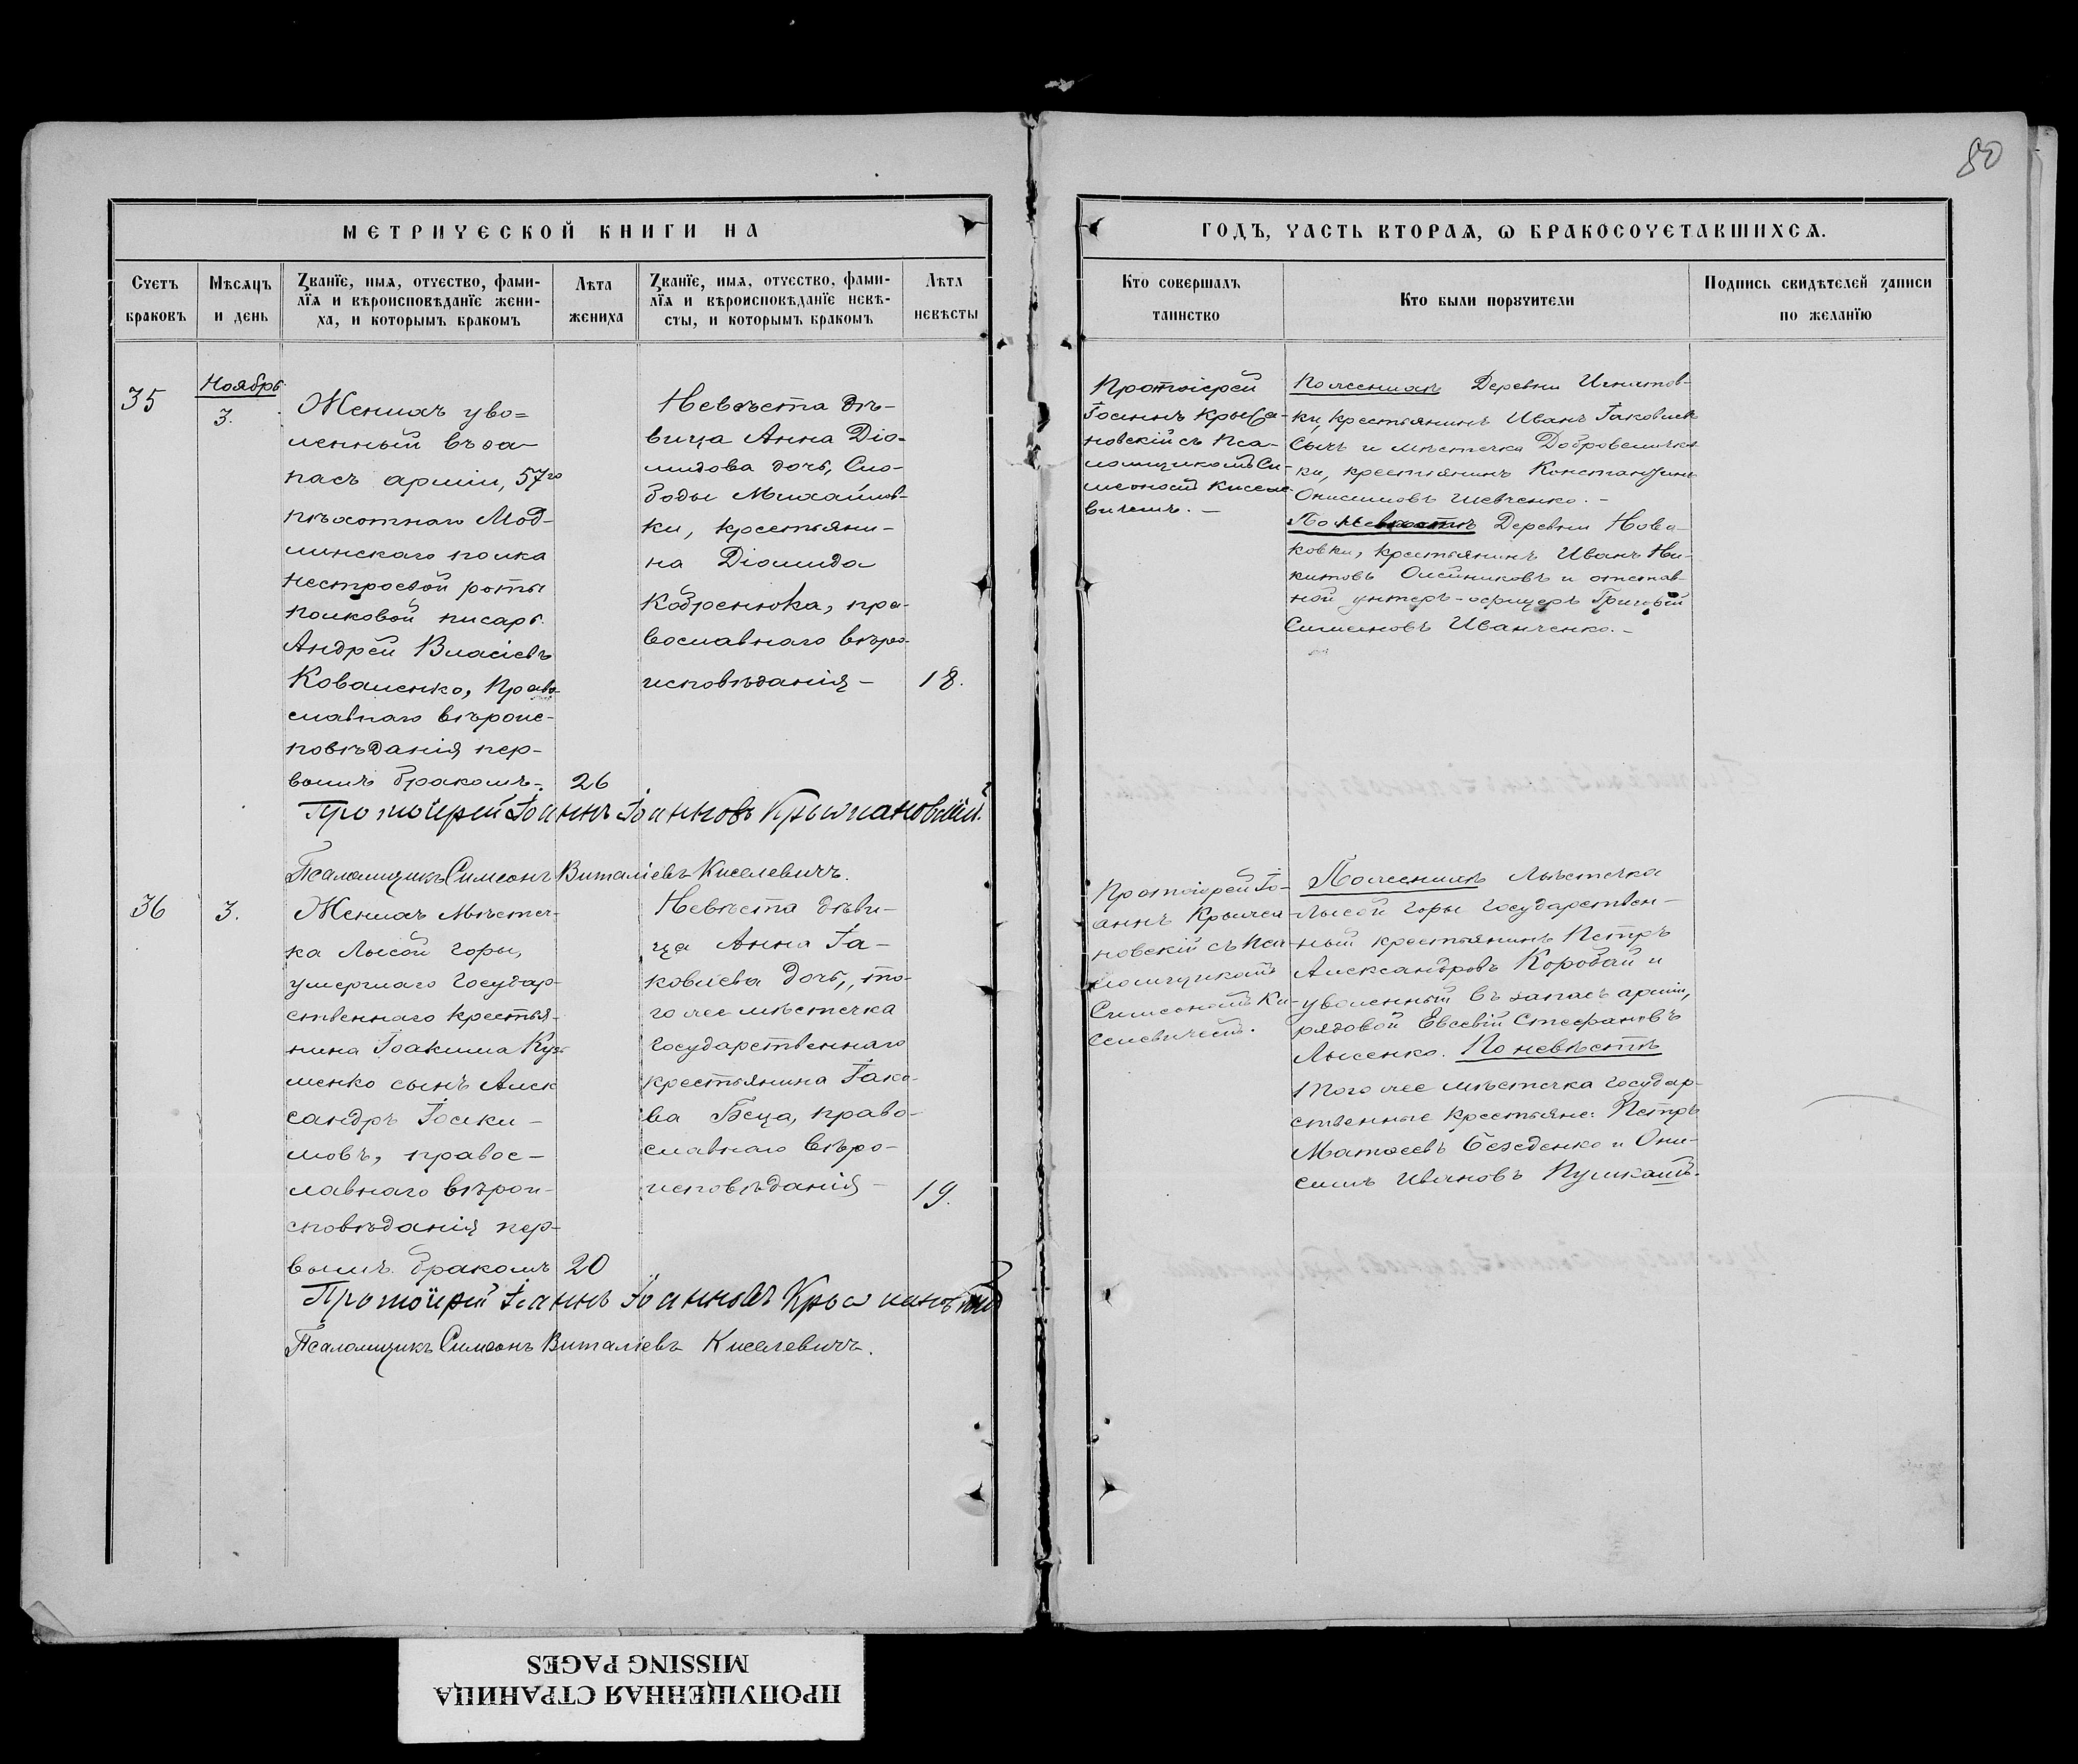 80
МЕТРИЧЕСКОЙ КНИГИ НА
ГОДЪ, ЧАСТЬ ВТОРАѦ, Ѡ БРАКОСОЧЕТАВШИХСѦ.
Счетъ браковъ
Мѣсѧцъ и день
Званїе, имѧ, отчество, фами-
лїѧ и вѣроисповѣданїе жени-
ха, и которымъ бракомъ
Лѣта жениха
Званїе, имѧ, отчество, фами-
лїѧ и вѣроисповѣданїе невѣ-
сты, и которымъ бракомъ
Лѣта невѣсты
Кто совершалъ
таинство
Кто были порꙋчители
Подпись свидѣтелей записи
по желанїю
35
Ноябрь
3.
Женихъ уво=
ленный въ за-
пасъ арміи, 57го
пѣхотнаго Мод-
линскаго полка
нестроевой роты
полковой писарь
Андрей Власіевъ
Коваленко, Право-
славнаго вѣроис-
повѣданія пер-
вымъ бракомъ.
26
Невѣста дѣ-
вица Анна Діо-
мидова дочь, Сло-
боды Михайлов-
ки, крестьяни-
на Діомида
Кобренюка, пра-
вославнаго вѣро-
исповѣданія –
18.
Протоіерей
Іоаннъ Крыжа-
новскій съ Пса-
ломщикомъ Си-
меономъ Киселе-
вичемъ. –
По женихѣ Деревни Игнатов-
ки, крестьянинъ Иванъ Іаковлевъ
Сычъ и мѣстечка Добровеличков-
ки, крестьянинъ Константинъ
Онисимовъ Шевченко. –
По невѣстѣ Деревни Нова-
ковки, крестьянинъ Иванъ Ни-
китовъ Олейниковъ и отстав-
ной унтеръ-офицеръ Григорій
Симеоновъ Иванченко. –
Протоіерей Іоаннъ Іоанновъ Крыжановскій.
Псаломщикъ Симеонъ Виталіевъ Киселевичъ.
36
3.
Женихъ Мѣстеч-
ка Лысой Горы,
умершаго Государ-
ственнаго крестья-
нина Іоакима Кузь-
менко сынъ Алек
сандръ Іоаки-
мовъ, правос-
лавнаго вѣрои-
сповѣданія пер-
вымъ бракомъ
20
Невѣста дѣви-
ца Анна Іа-
ковлева дочь, то-
го же мѣстечка
Государственнаго
крестьянина Іако-
ва Беца, право-
славнаго вѣро-
исповѣданія –
19.
Протоіерей Іо-
аннъ Крыжа-
новскій съ Пса-
ломщикомъ
Симеономъ Ки-
селевичемъ.
По женихѣ Мѣстечка
Лысой Горы Государствен-
ный крестьянинъ Петръ
Александровъ Коробай и
уволенный въ запасъ арміи,
рядовой Евсевій Стефановъ
Лысенко. По невѣстѣ
того же мѣстечка Государ-
ственные крестьяне: Петръ
Матѳеевъ Безденко и Они-
симъ Ивановъ Пушкашъ.
Протоіерей Іоаннъ Іоанновъ Крыжановскій
Псаломщикъ Симеонъ Виталіевъ Киселевичъ.
ПРОПУЩЕННАЯ СТРАНИЦА
MISSING PAGES